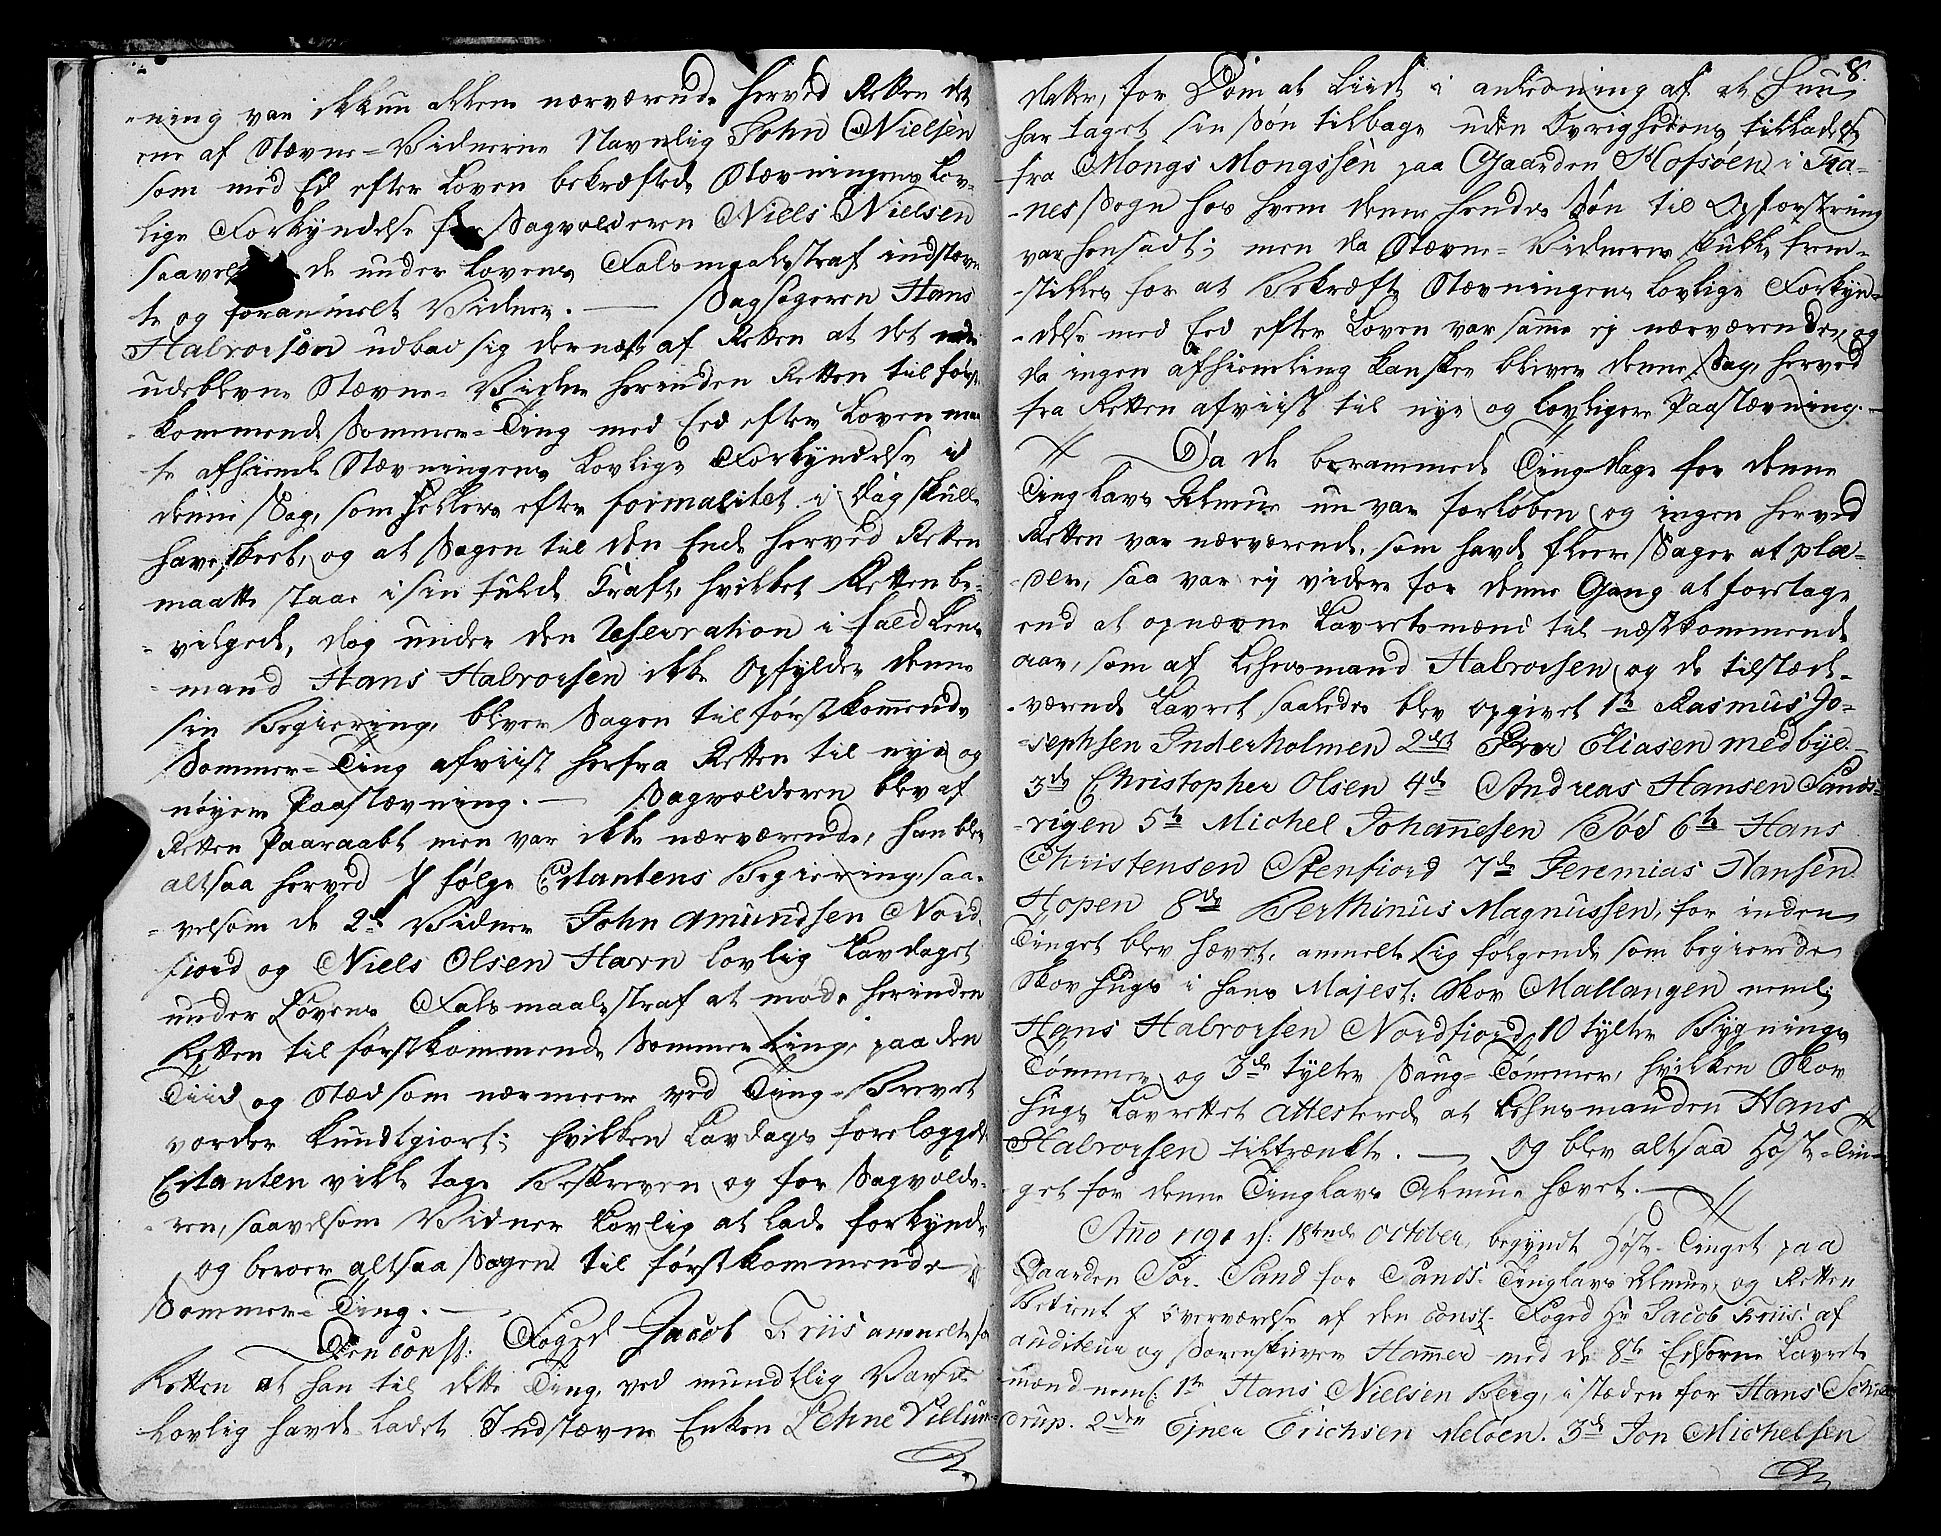 -ning var ikkun alleene nærværende herved Retten det
eene af Stævne-Vidnerne Navnlig John Nielsen
som med Ed efter Loven bekræftede Stævningens Lov-
lige Forkyndelse for Sagvolderen Niels Nielsen
saavel de under Lovens Falsmaalsstraf indstævn
te og foranmelt Vidner. — Sagsøgeren Hans
Halvorsen udbad sig dernæst af Retten at det
udeblevne Stævne-Vidne herinden Retten til først
kommende Sommer-Ting med Eed efter Loven maa
te afhiemle Stævningens Lovlige Forkyndelse i
denne Sag, som hellers efter formalitet i Dag skulle
have skeet, og at Sagen til den Ende herved Retten
maatte staae i sin fulde Kraft, hvilket Retten be-
-vilgede, dog under den Reservation i fald Lens
-mand Hans Halvorsen ikke Opfylder denne
sin Begiering, bliver Sagen til førstkommende
Sommer-Ting afviist herfra Retten til nye og
nøyere Paastævning. — Sagvolderen blev af
Retten Paaraabt men var ikke nærværende, han blev
altsaa herved I følge Citantens Begiering, saa-
-velsom de 2de Vidner John Amundsen Nord
fiord og Niels Olsen Harn lovlig Lavdaget
under Lovens Falsmaalsstraf at møde herinden
Retten til førstkommende Sommer Ting, paa den
Tiid og Stæd som nærmere ved Ting-Brevet
vorder kundtgiort; hvilken Lavdags forelæggelse
Citanten ville tage Beskreven og for Sagvolde-
-ren, saavelsom Vidner Lovlig at lade forkynde
og beroer altsaa Sagen til førstkommende
Sommer-Ting. —
Den const: Foged Jacob Friis anmelte for
Retten at han til dette Ting, ved mundtlig Varsel
Lovlig havde ladet Indstævne Enken Lehne Villum-
8.
datter, for Dom at Liide i anledning af at hun
har taget sin Søn tilbage uden Øvrighedens tilladelse
fra Mongs Mongssen paa Gaarden Hofsøen i Tra-
-nes Sogn hos hvem denne hendes Søn til Opfostring
var hensadt; men da Stævne-Vidnerne skulle frem-
-stilles for at Bekræfte Stævningens lovlige Forkyn-
-delse med Eed efter Loven var samme ej nærværende, og
da ingen afhiemling kan skee bliver denne Sag, herved
fra Retten afviist til nye og lovligere Paastævning. —
Da de berammede Tingdage for denne
Tinglavs Almue nu var forløben og ingen herved
Retten var nærværende, som havde fleere Sager at plæ-
-dere, saa var ej videre for denne Gang at foretage
end at opnævne Lavrettsmænd til næstkommende
aar, som af Lehnsmand Halvorsen og de tilstæde-
-værende Lavret, saaledes blev opgivet 1te Rasmus Jo-
-sephsen Inderholmen 2den Peer Eliasen Medbye.-
3de Christopher Olsen 4de Andreas Hansen Sands-
-vigen 5te Michel Johannesen Sød 6te Hans
Christensen Stenfiord 7de Jeremias Hansen
Hopen 8de Berthinus Magnussen, for inden
Tinget blev hævet, anmelte sig følgende som begierede
Skov hugs i hans Majest: Skov Mallangen neml:
Hans Halvorsen Nordfiord, 10 tylter Bygnings
Tømmer og 3de tylter Saug-Tømmer, hvilken Skov
hugs Lavrettet attesterede at Lehnsmanden Hans
Halvorsen tiltrænkte. — og blev altsaa Høste-Tin-
get for denne Tinglavs Almue hævet. —
Anno 1791 d: 18tende October, begyndt Høste-Tinget paa
Gaarden Sør-Sand for Sands-Tinglavs Almue, og Retten
Betient I overværelse af den const. Foged Hr Jacob Friis: af
auditeur og Sorenskriver Hammer med de 8te Edsorne Lavretts
mænd neml: 1te Hans Nielsen Berg, i stæden for Hans
drup. 2den Ejner Erichsen Meløen. 3de Jon Michelsen